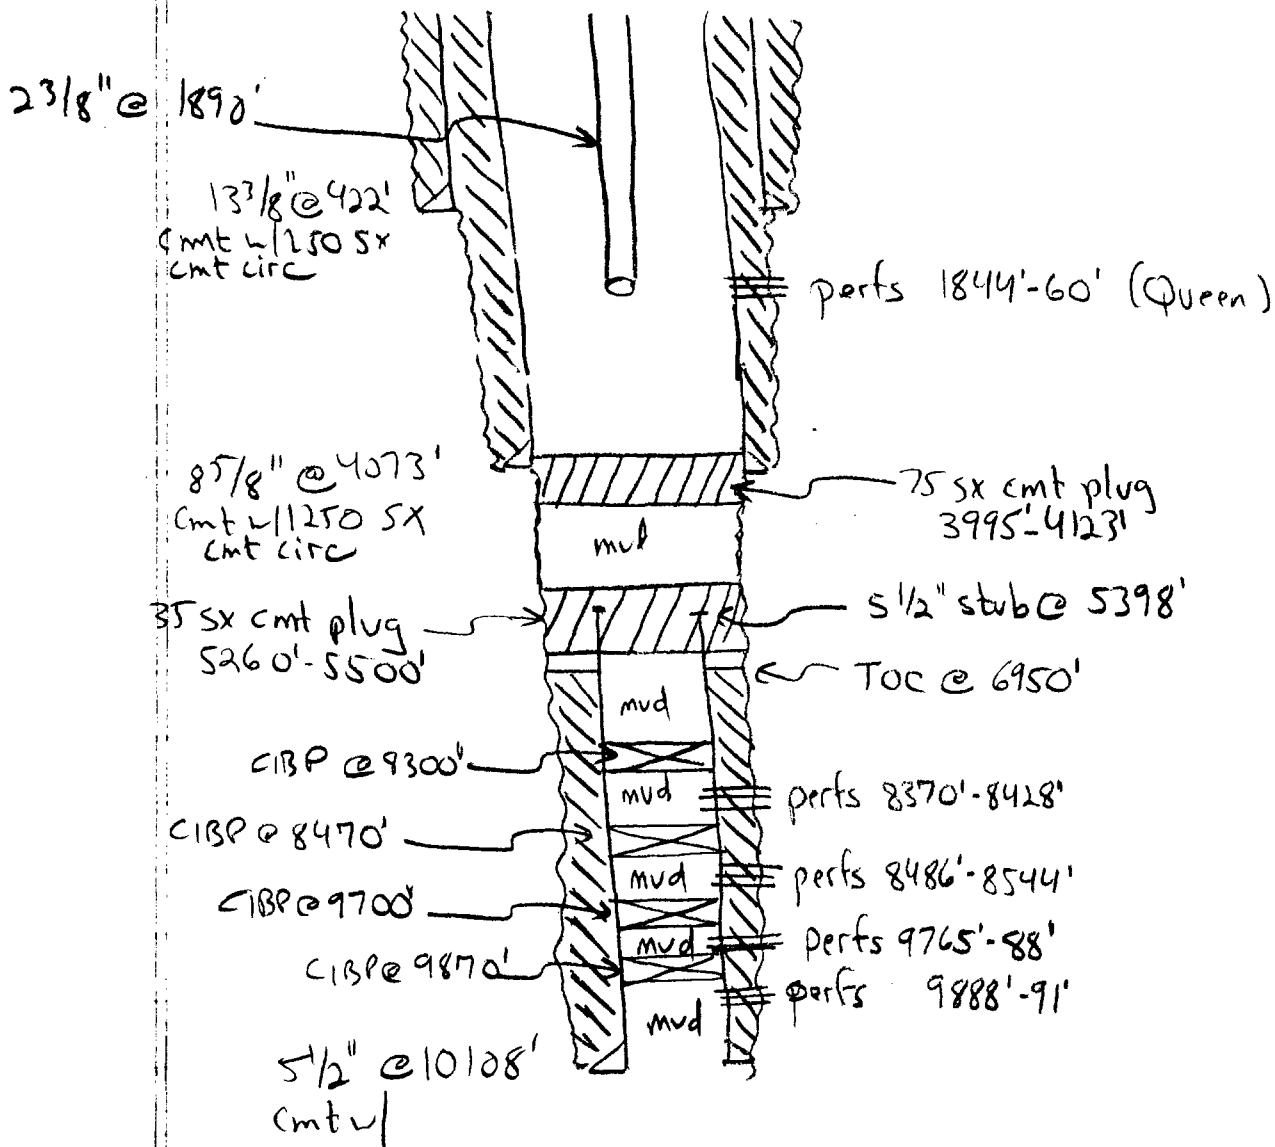 2 3/8" @ 1890'
13 3/8" @ 422'
cmt w/ 1250 sx
cmt circ
perfs 1844'-60' (Queen)
8 5/8" @ 4073'
cmt w/ 1250 SX
cmt circ
75 sx cmt plug
3995'-4123'
mud
35 sx cmt plug
5260'-5500'
5 1/2" stub @ 5398'
TOC @ 6950'
mud
CIBP @ 8300'
mud
perfs 8370'-8428'
CIBP @ 8470'
mud
perfs 8486'-8544'
CIBP @ 9700'
mud
perfs 9765'-88'
CIBP @ 9870'
perfs 9888'-91'
mud
5 1/2" @ 10108'
cmt w/